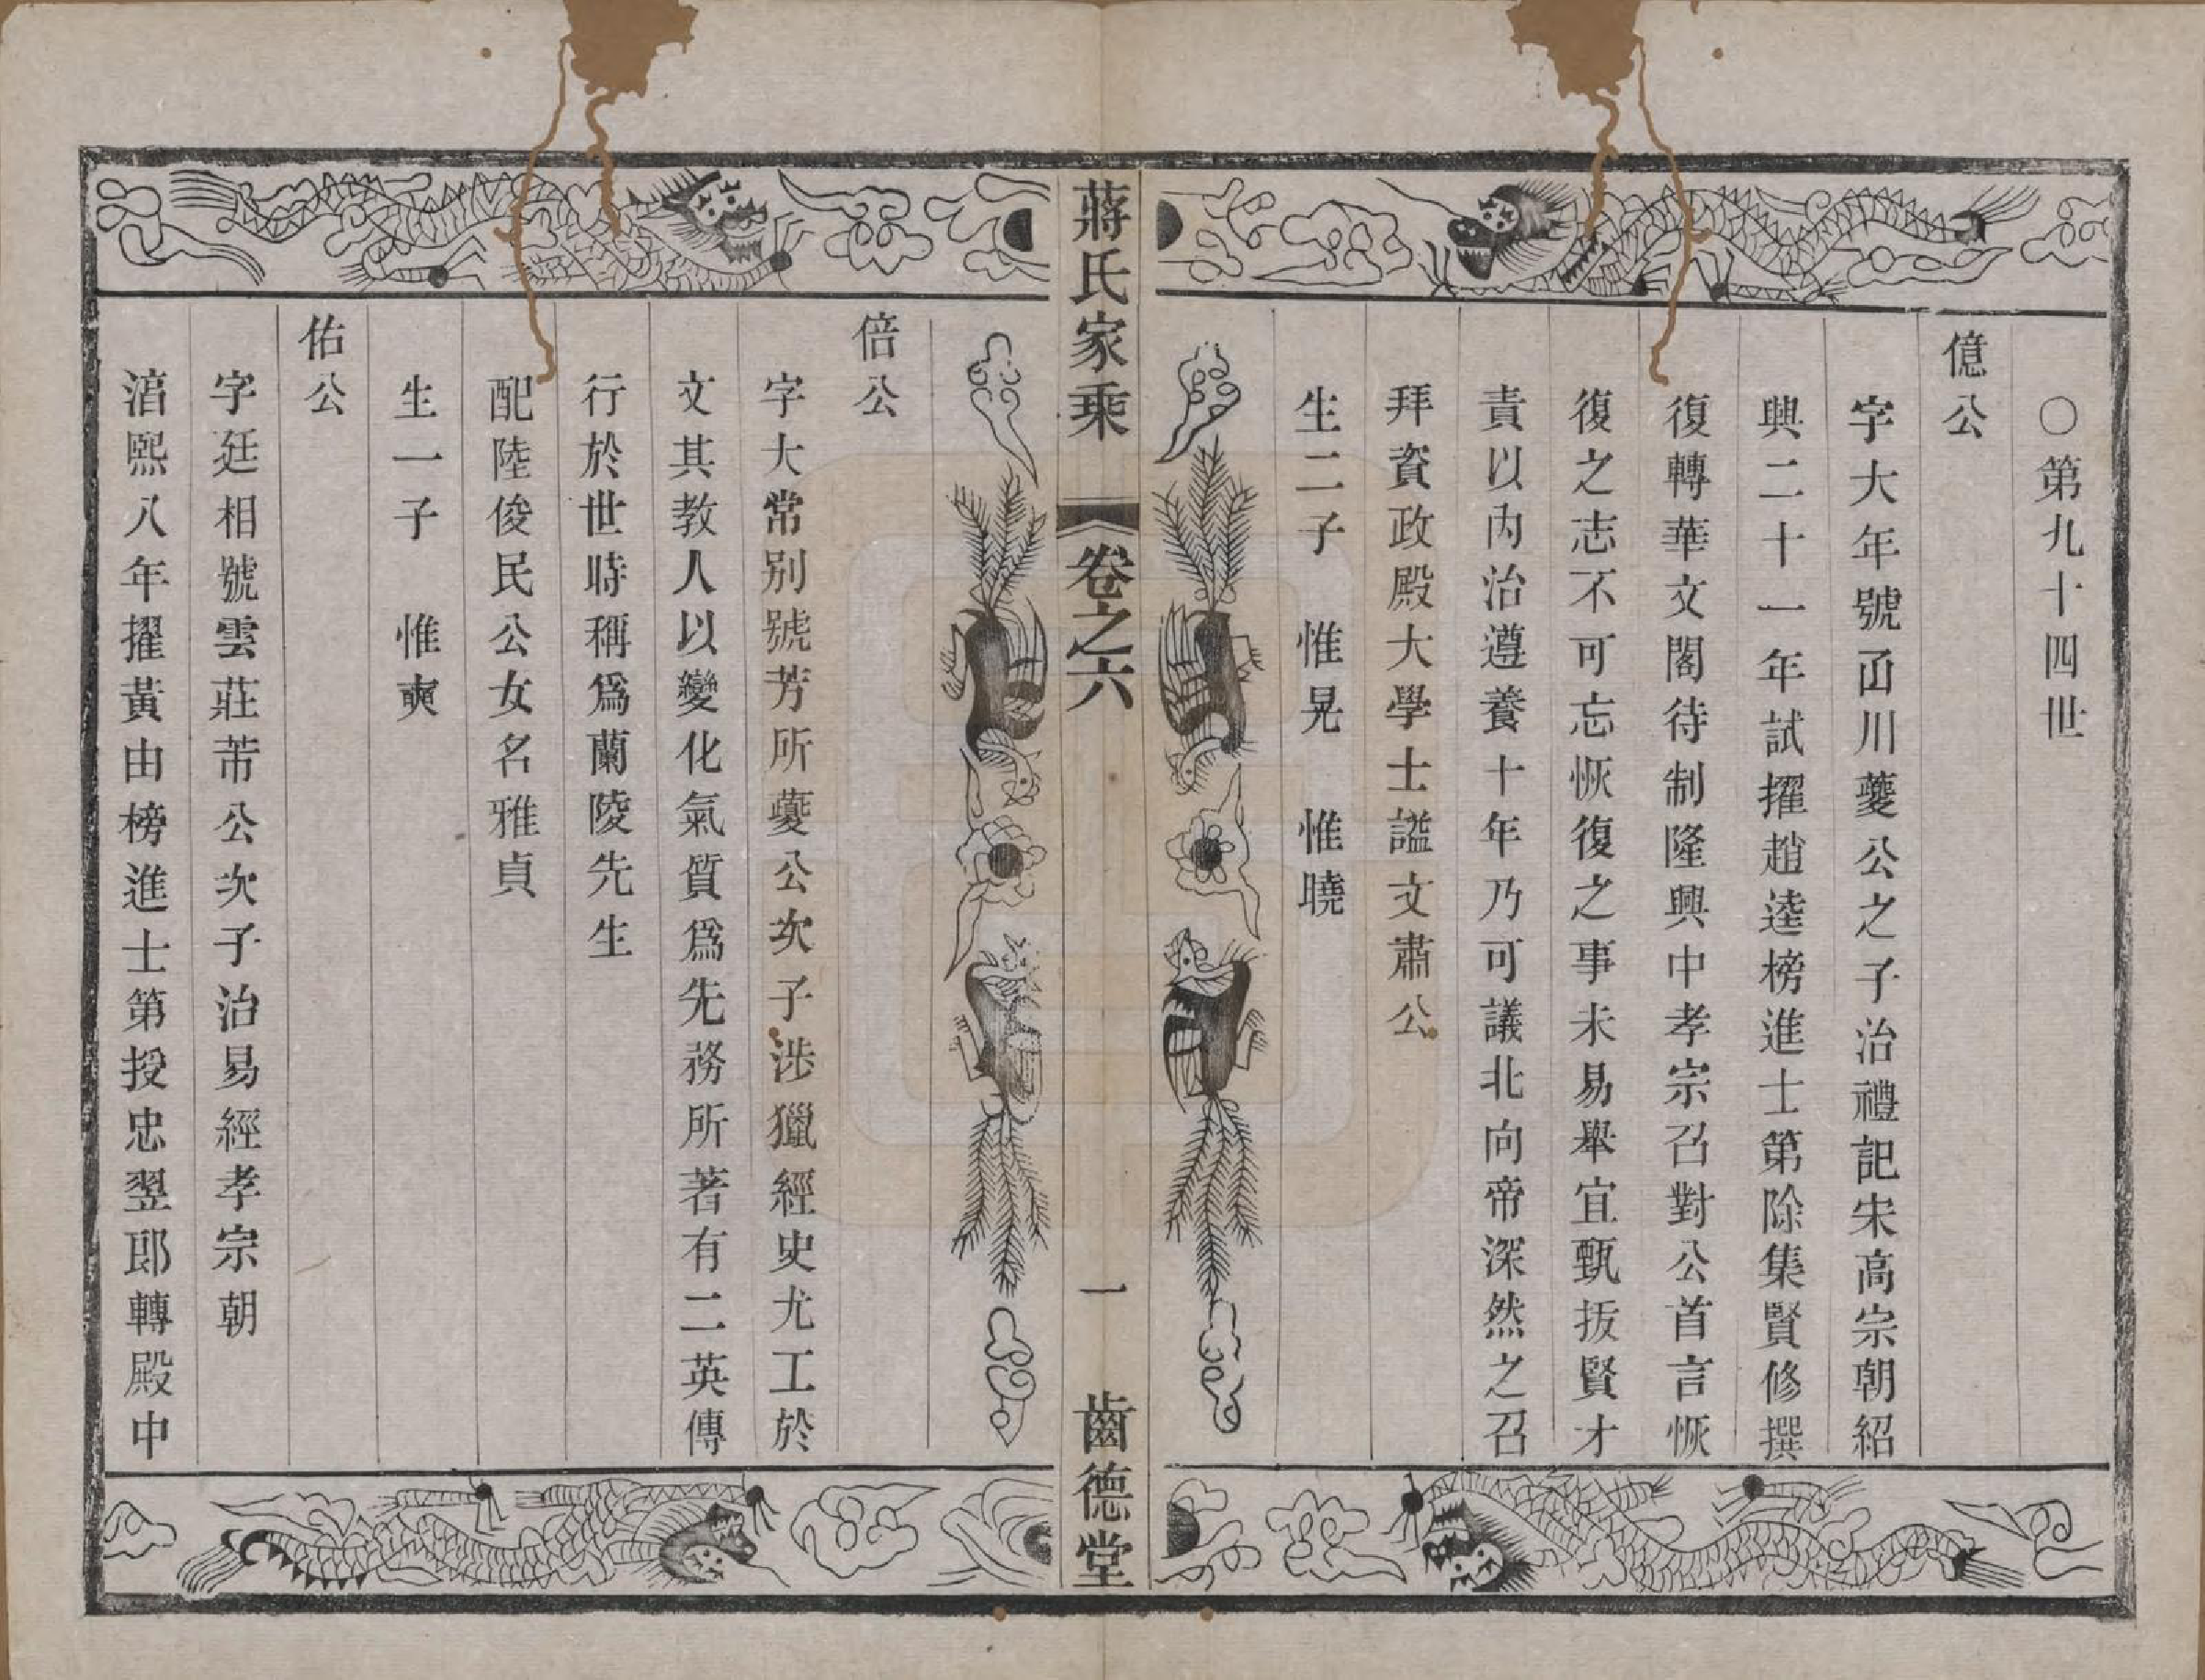 ○第九十四世
億公
字大年號酉川夔公之子治禮記宋高宗朝紹
興二十一年試擢趙逵榜進士第除集賢修撰
復轉華文閣待制隆興中孝宗召對公首言恢
復之志不可忘恢復之事未易舉宜甄拔賢才
責以內治遵養十年乃可議北向帝深然之召
拜資政殿大學士謚文肅公
生二子　惟晃　惟曉
蔣氏家乘　卷之六　一　齒德堂
倍公
字大常別號芳所夔公次子涉獵經史尤工於
文其教人以變化氣質爲先務所著有二英傳
行於世時稱爲蘭陵先生
配陸俊民公女名雅貞
生一子　惟奭
佑公
字廷相號雲莊芾公次子治易經孝宗朝
湻熙八年擢黃由榜進士第授忠翌郎轉殿中